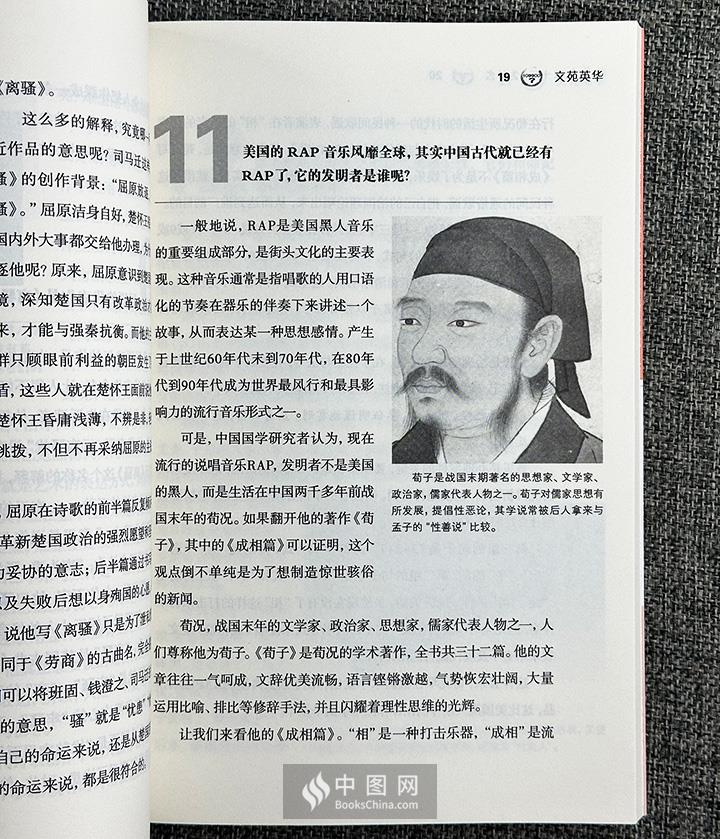 《离骚》。
这么多的解释，究竟哪一
近作品的意思呢？司马迁
》的创作背景：“屈原放逐，
》。”屈原洁身自好，楚怀王
国内外大事都交给他办理，为什
逐他呢？原来，屈原意识到
境，深知楚国只有改革政治
来，才能与强秦抗衡。而他
群只顾眼前利益的朝臣发生
盾，这些人就在楚怀王面前
楚怀王昏庸浅薄，不辨是非，
挑拨，不但不再采纳屈原的主
，屈原在诗歌的前半篇反复
革新楚国政治的强烈愿望和
力妥协的意志；后半篇通过
以及失败后想以身殉国的心
说他写《离骚》只是为了
同于《劳商》的古曲名，完全
们可以将班固、钱澄之、司马迁
的意思，“骚”就是“忧愁”
自己的命运来说，还是从楚国
的命运来说，都是很符合的。
19 文苑英华
11
美国的 RAP 音乐风靡全球，其实中国古代就已经有
RAP了，它的发明者是谁呢？
一般地说，RAP是美国黑人音乐
的重要组成部分，是街头文化的主要表
现。这种音乐通常是指唱歌的人用口语
化的节奏在器乐的伴奏下来讲述一个
故事，从而表达某一种思想感情。产生
于上世纪60年代末到70年代，在80年
代到90年代成为世界最风行和最具影
响力的流行音乐形式之一。
可是，中国国学研究者认为，现在
流行的说唱音乐RAP，发明者不是美国
的黑人，而是生活在中国两千多年前战
国末年的荀况。如果翻开他的著作《荀
子》，其中的《成相篇》可以证明，这个
观点倒不单纯是为了想制造惊世骇俗
的新闻。
荀子是战国末期著名的思想家、文学家、
政治家，儒家代表人物之一。荀子对儒家思想有
所发展，提倡性恶论，其学说常被后人拿来与
孟子的“性善说”比较。
荀况，战国末年的文学家、政治家、思想家，儒家代表人物之一，人
们尊称他为荀子。《荀子》是荀况的学术著作，全书共三十二篇。他的文
章往往一气呵成，文辞优美流畅，语言铿锵激越，气势恢宏壮阔，大量
运用比喻、排比等修辞手法，并且闪耀着理性思维的光辉。
让我们来看他的《成相篇》。“相”是一种打击乐器，“成相”是流
中图网
BooksChina.com